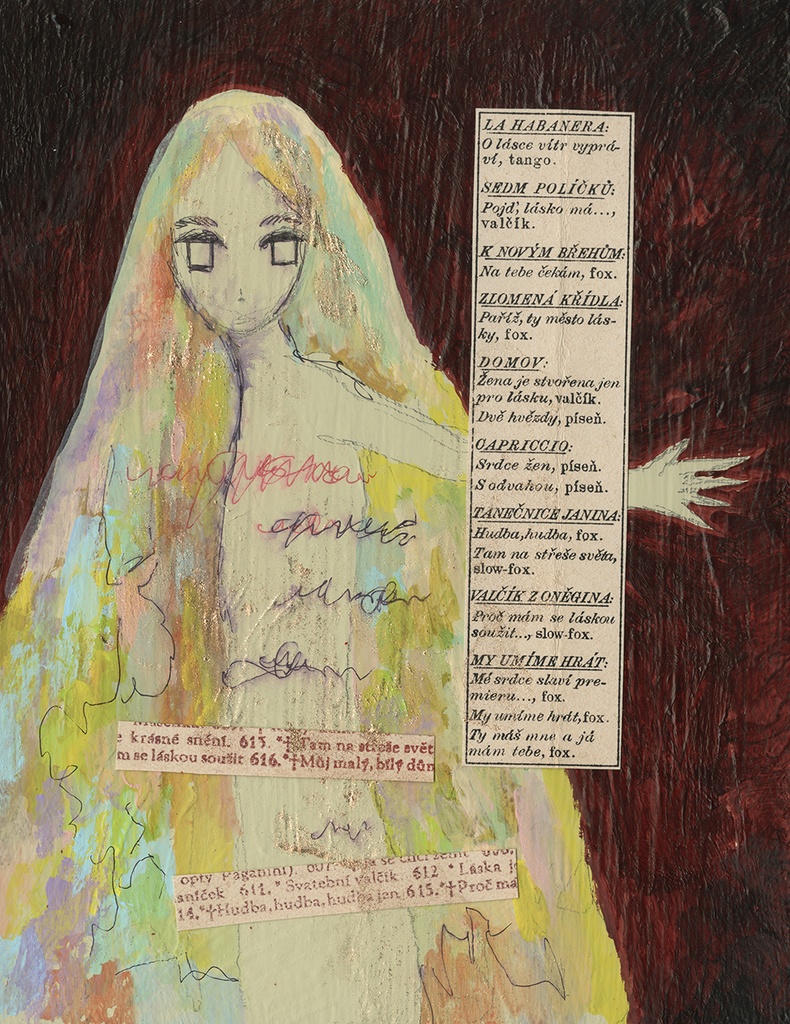 LA HABANERA:
O lásce vítr vyprá-
ví, tango.
SEDM POLÍČKŮ:
Pojď, lásko má...,
valčík.
K NOVÝM BŘEHŮM:
Na tebe čekám, fox.
ZLOMENÁ KŘÍDLA:
Paříž, ty město lás-
ky, fox.
DOMOV:
Žena je stvořena jen
pro lásku, valčík.
Dvě hvězdy, píseň.
CAPRICCIO:
Srdce žen, píseň.
S odvahou, píseň.
TANEČNICE JANINA:
Hudba, hudba, fox.
Tam na střeše světa,
slow-fox.
VALČÍK Z ONĚGINA:
Proč mám se láskou
soužit..., slow-fox.
MY UMÍME HRÁT:
Mé srdce slaví pre-
mieru..., fox.
My umíme hrát, fox.
Ty máš mne a já
mám tebe, fox.
e krásné snění. 615. *† Tam na střeše svět
m se láskou soužit 616. *† Můj malý, bílý dům
opty Paganini). se chci ženit
sníček 611. * Svatební valčík. 612 * Láska j
14. *† Hudba, hudba, hudba jen 615. *† Proč má